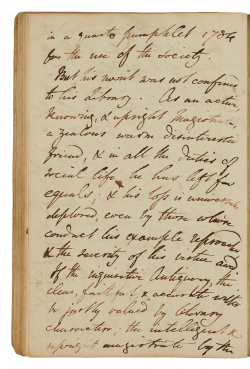 in a quarto pamphlet 1786
for the use of the Society.
But his merit was not confined
to his library. As an active
knowing, & upright Magistrate
a zealous warm disinterested
friend, & in all the duties of
social life, he has left few
equals; & his loss is
deplored, even by those whose
conduct his example reproved
& the severity of his virtue
of the inquisitive Antiquary, the
clear, faithful, & accurate writer
be justly valued by literary
characters; the intelligent &
upright magistrate by the